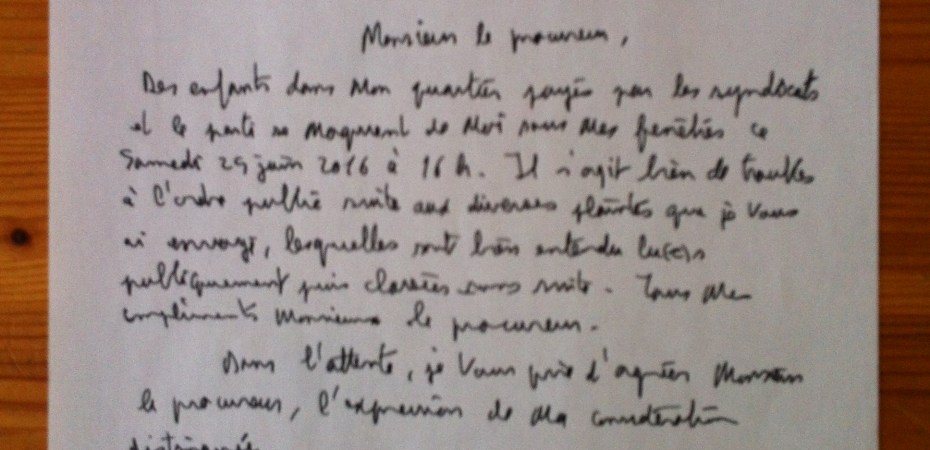 Monsieur le procureur,
Des enfants dans mon quartier payés par les syndicats
et le parti se moquent de moi sous mes fenêtres ce
Samedi 25 juin 2016 à 16 h. Il s'agit bien de troubles
à l'ordre public suite aux diverses plaintes que je vous
ai envoyé, lesquelles sont bien entendu lu(e)s
publiquement puis classées sans suite. Tous mes
compliments Monsieur le procureur.
Dans l'attente, je vous prie d'agréer Monsieur
le procureur, l'expression de ma considération
distinguée